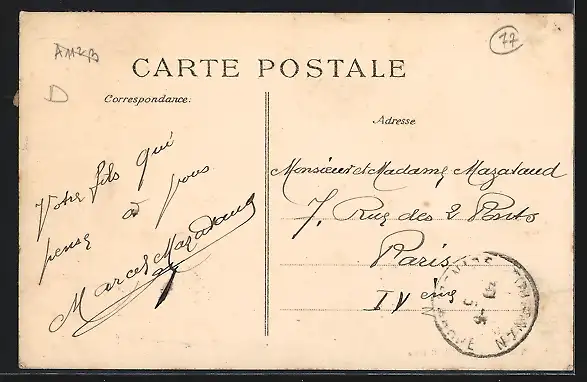 AM2KB
77
D
CARTE POSTALE
Correspondance.
Adresse
Votre fils qui
pense à vous
Marcel Mazataud
Monsieur et Madame Mazataud
7, Rue des 2 Ponts
Paris
IVème